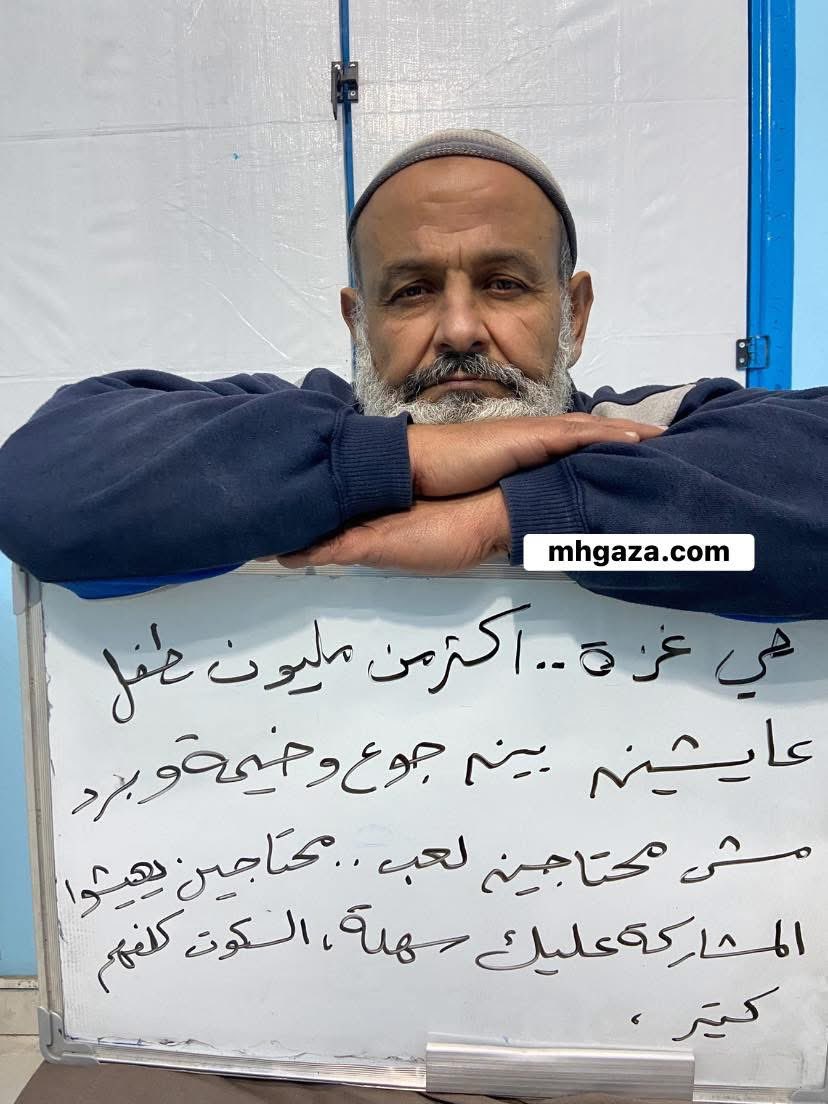 mhgaza.com
في غزة.. اكثر من مليون طفل
عايشين بين جوع وخيمة وبرد
مش محتاجين لعب.. محتاجين يعيشوا
المشاركة عليك سهلة، السكوت كلفهم
كتير،